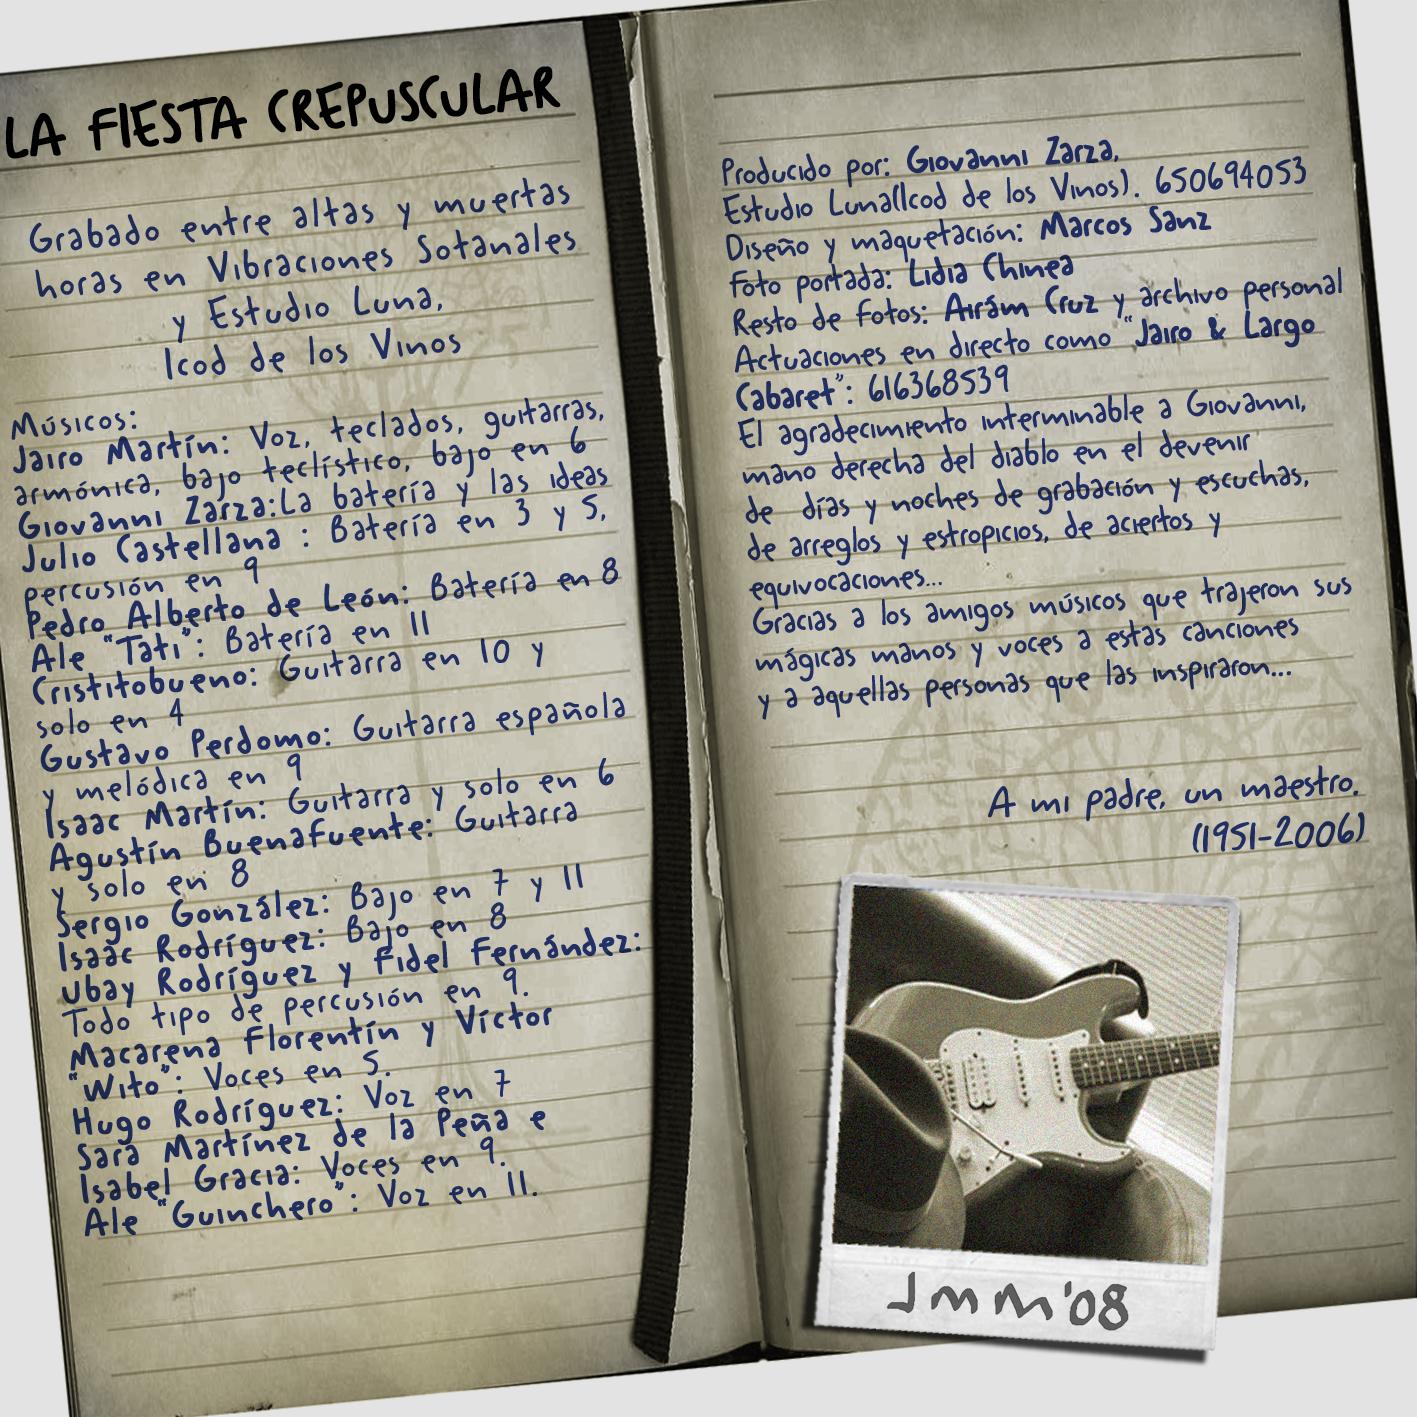 LA FIESTA CREPUSCULAR
Grabado entre altas y muertas
horas en Vibraciones Sotanales
y Estudio Luna,
Icod de los Vinos
Músicos:
Jairo Martín: Voz, teclados, guitarras,
armónica, bajo teclístico, bajo en 6
Giovanni Zarza:La batería y las ideas
Julio Castellana : Batería en 3 y 5,
percusión en 9
Pedro Alberto de León: Batería en 8
Ale "Tati": Batería en 11
Cristitobueno: Guitarra en 10 y
solo en 4
Gustavo Perdomo: Guitarra española
y melódica en 9
Isaac Martín: Guitarra y solo en 6
Agustín Buenafuente: Guitarra
y solo en 8
Sergio González: Bajo en 7 y 11
Isaac Rodríguez: Bajo en 8
Ubay Rodríguez y Fidel Fernández:
Todo tipo de percusión en 9.
Macarena Florentín y Víctor
"Wito": Voces en 5.
Hugo Rodríguez: Voz en 7
Sara Martínez de la Peña e
Isabel Gracia: Voces en 9.
Ale "Guinchero": Voz en 11.
Producido por: Giovanni Zarza,
Estudio Luna(Icod de los Vinos). 650694053
Diseño y maquetación: Marcos Sanz
Foto portada: Lidia Chinea
Resto de fotos: Airám Cruz y archivo personal
Actuaciones en directo como "Jairo & Largo
Cabaret": 616368539
El agradecimiento interminable a Giovanni,
mano derecha del diablo en el devenir
de días y noches de grabación y escuchas,
de arreglos y estropicios, de aciertos y
equivocaciones...
Gracias a los amigos músicos que trajeron sus
mágicas manos y voces a estas canciones
y a aquellas personas que las inspiraron...
A mi padre, un maestro.
(1951-2006)
JMM'08